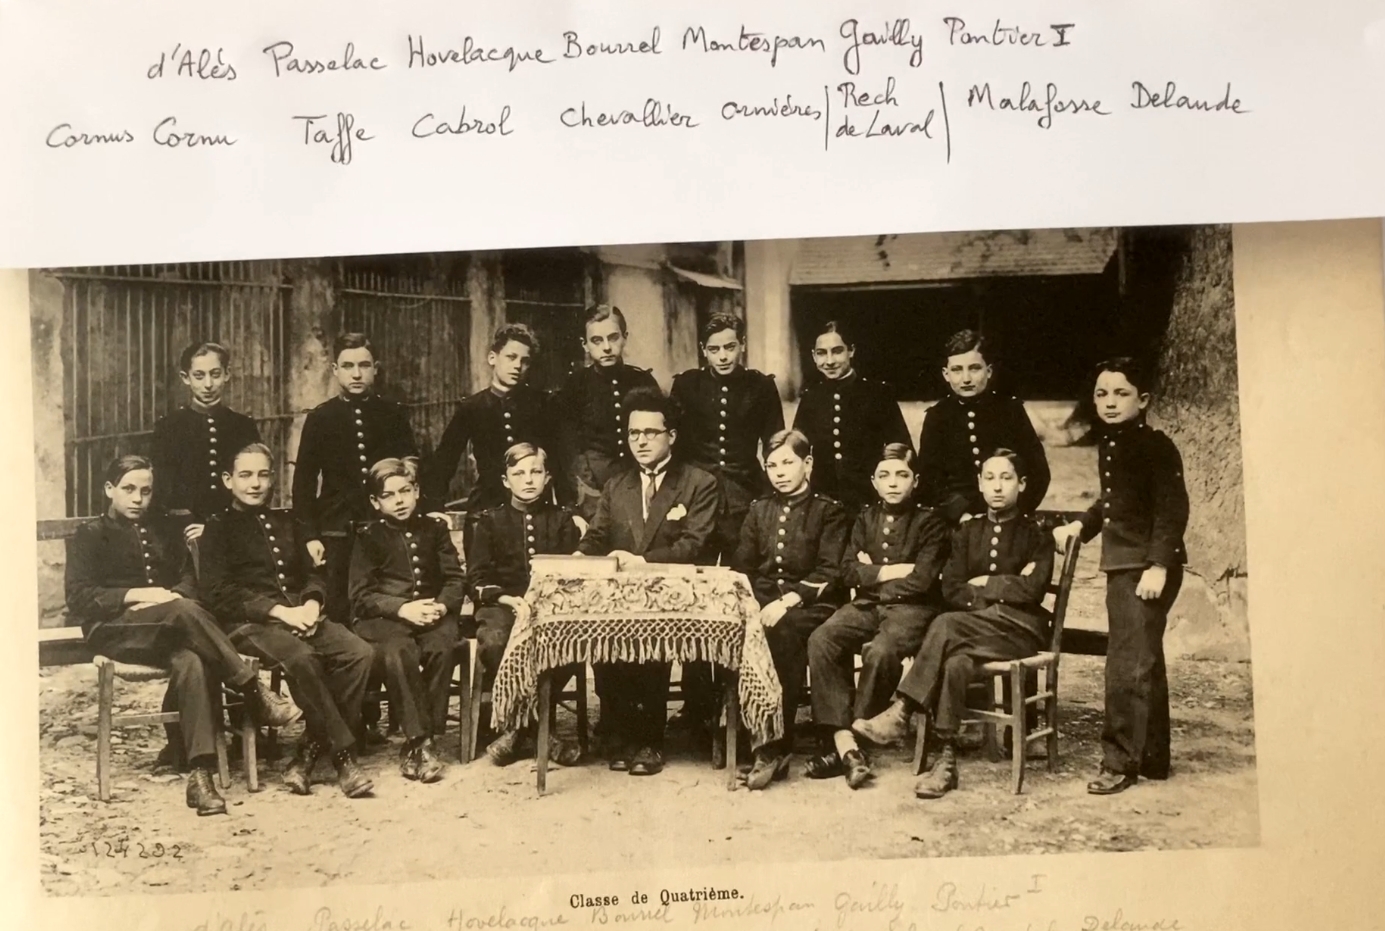 d'Alés Passelac Hovelacque Bourrel Montespan Gailly Pontier I
Cornus Cornu Taffe Cabrol Chevallier Ornières | Rech de Laval | Malafosse Delaude
124292
Classe de Quatrième.
d'Alés Passelac Hovelacque Bourrel Montespan Gailly Pontier I
Delaude